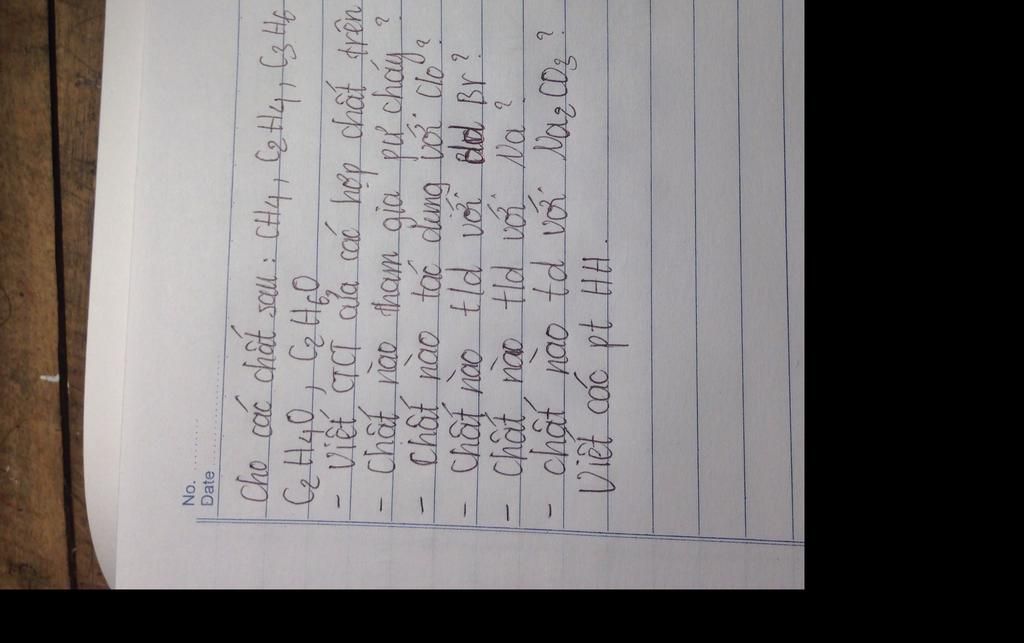 No. ..........
Date ....................
Cho các chất sau : CH4, C2H4, C3H6
C2H4O, C2H6O
- Viết CTCT của các hợp chất trên
- Chất nào tham gia pư cháy ?
- Chất nào tác dụng với Clo ?
- Chất nào t/d với dd Br ?
- Chất nào t/d với Na ?
- chất nào td với Na2CO3 ?
Viết các pt HH.